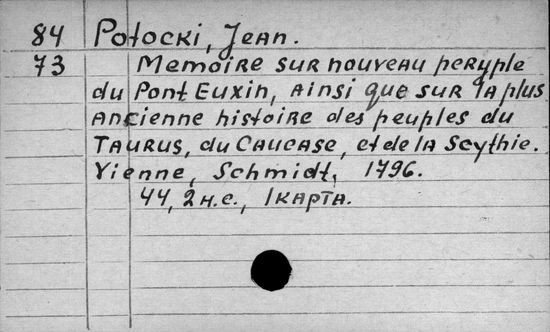 84 Potocki, Jean.
73 Memoire sur nouveau peryple
du Pont Euxin, ainsi que sur la plus
ancienne histoire des peuples du
Taurus, du Caucase, et de la Scythie.
Vienne, Schmidt, 1796.
44, 2 н.с., 1 карта.